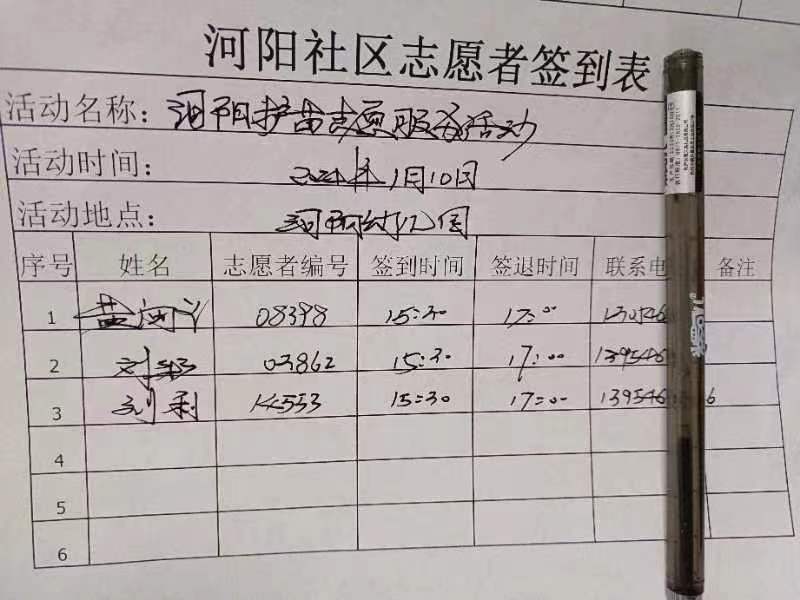 河阳社区志愿者签到表
活动名称：河阳护苗志愿服务活动
活动时间：2021年1月10日
活动地点：河阳幼儿园
序号 姓名 志愿者编号 签到时间 签退时间 联系电 备注
1 08398 15:30 17:00 130546
2 刘 03862 15:30 17:00 139546
3 刘利 15:30 17:00 139546 6
4
5
6